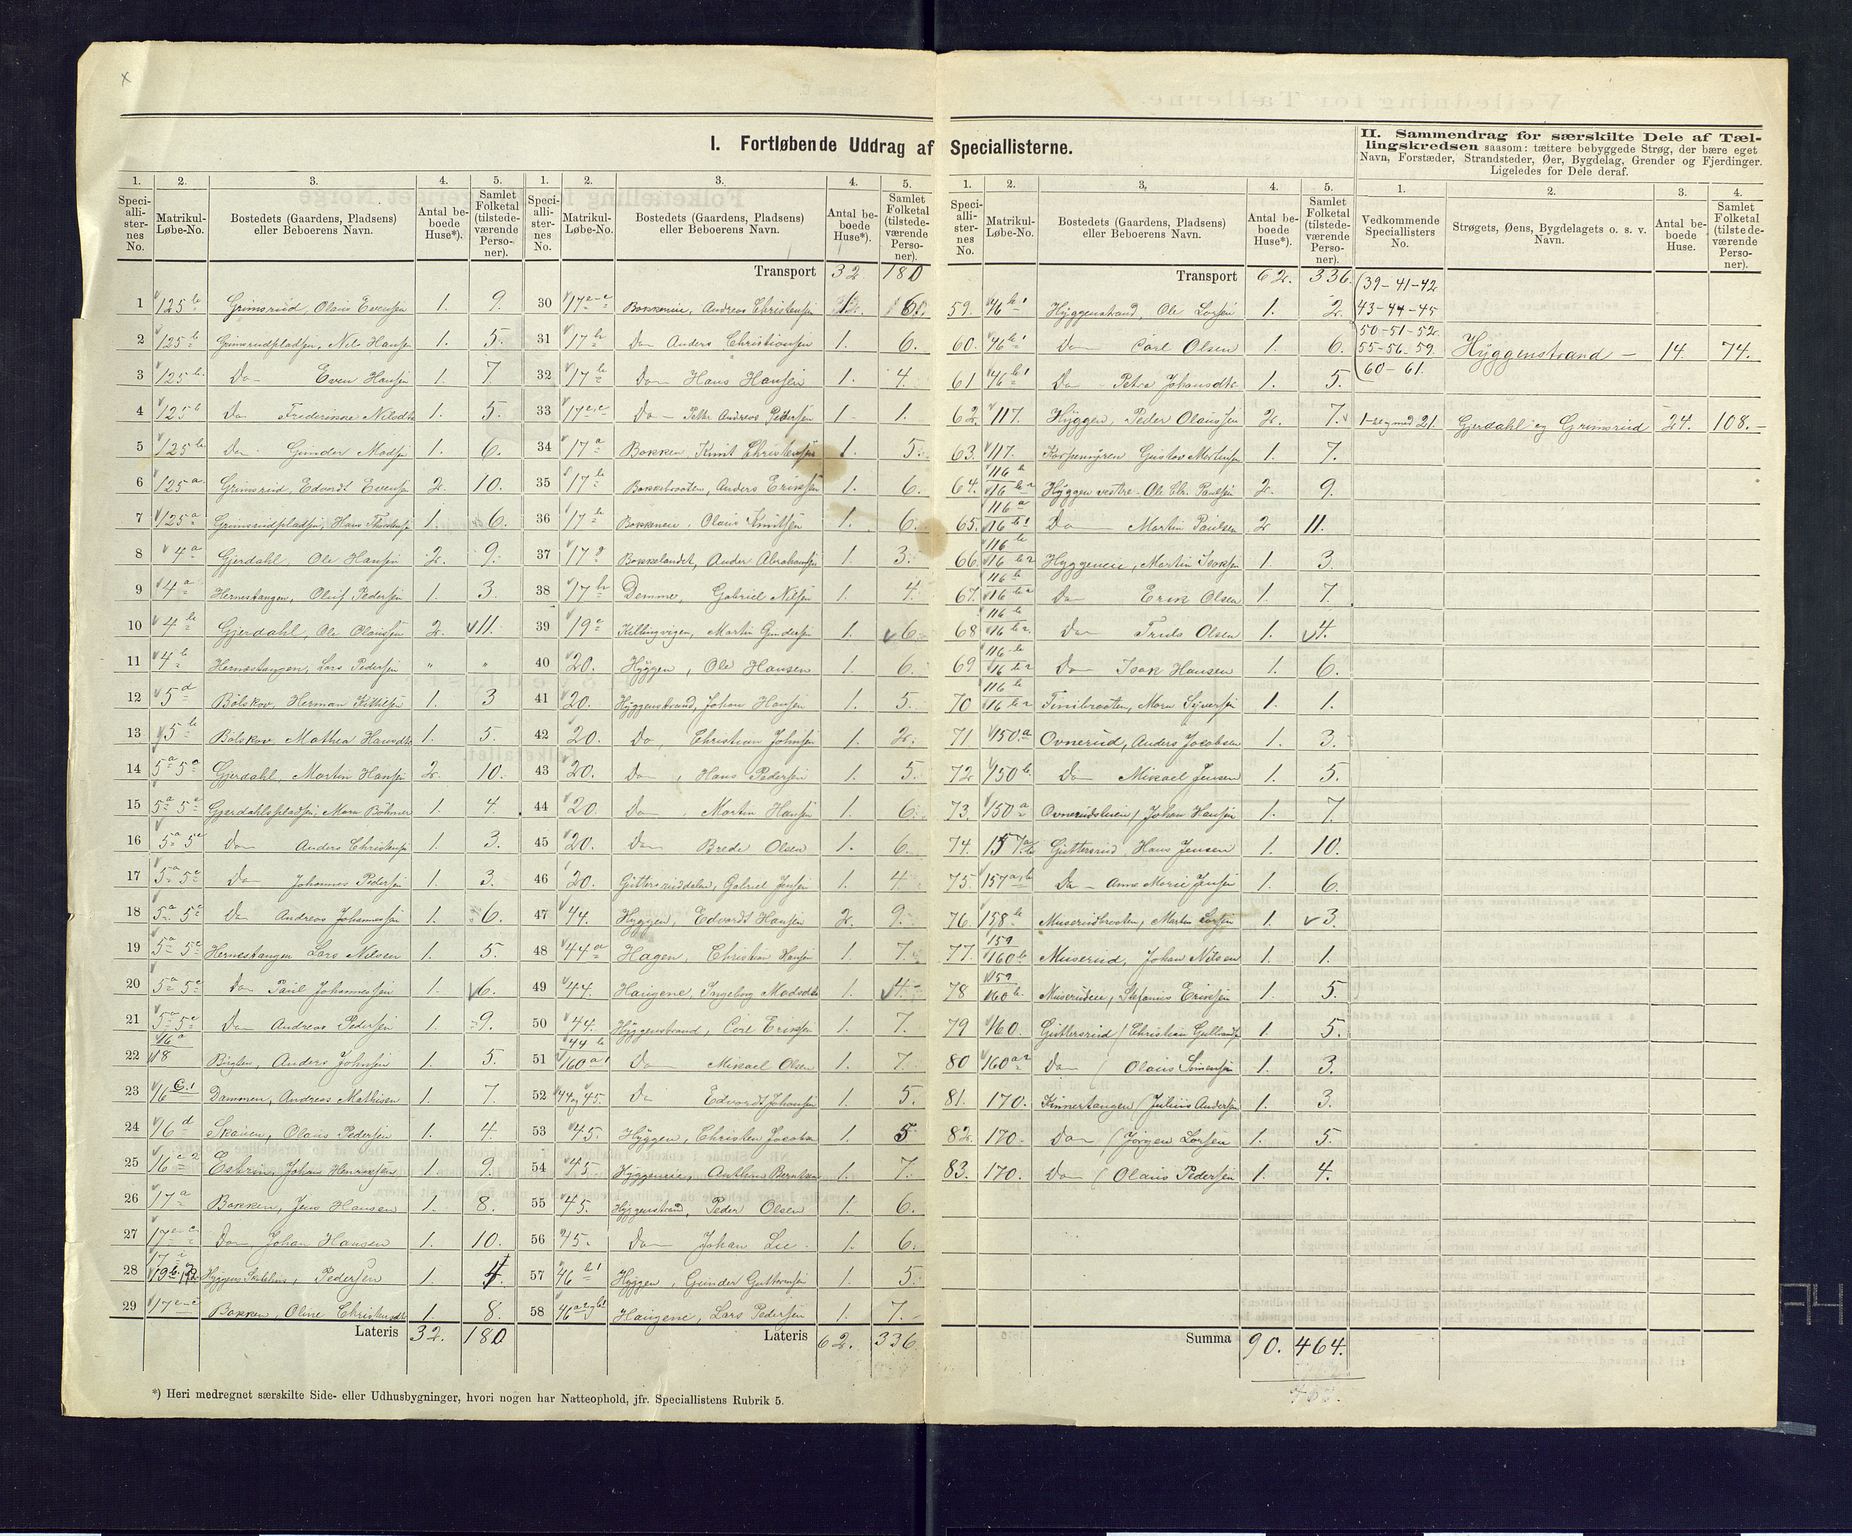 I. Fortløbende Uddrag af Speciallisterne.
1. 2. 3. 4. 5.
Speciallisternes No. Matrikul-Løbe-No. Bostedets (Gaardens, Pladsens) eller Beboerens Navn. Antal beboede Huse*). Samlet Folketal (tilstedeværende Personer).
1 125 b Grimsrud, Olaus Evensen 1. 9.
2 125 b Grimsrudpladsen, Nils Hansen 1. 5.
3 125 b. Do Even Hansen 1. 7
4 125 b Do Frederikke Nilsdtr 1. 5.
5 125 b Do Gunder Madsen 1. 6.
6 125 a. Grimsrud, Edvardt Evensen 2. 10.
7 125 a Grimsrudpladsen, Hans Thorstensen 1. 6.
8 4 a Gjerdahl, Ole Hansen 2. 9.
9 4 a Hernestangen, Oluf Pedersen 1. 3.
10 4 b Gjerdahl, Ole Olaussen 2. 11.
11 4 b Hernestangen, Lars Pedersen " "
12 5 d Bölskov, Herman Kittilsen 1. 3
13 5 b Bölskov, Mathea Hansdtr 1. 5.
14 5 a 5 c Gjerdahl, Martin Hansen 2. 10.
15 5 a 5 c Gjerdahlspladsen, Maren Böhmer 1. 4.
16 5 a 5 c Do Anders Christensen 1. 3.
17 5 a 5 c Do Johannes Pedersen 1. 3.
18 5 a 5 c Do Andreas Johannessen 1. 6.
19 5 a 5 c Hernestangen Lars Nilsen 1. 5.
20 5 a 5 c Do Paul Johannessen 1. 6.
21 5 a 5 c Do Andreas Pedersen 1. 9.
22 16 a 18 Bugten, Anders Johnsen 1. 5
23 16 c1 Dammen, Andreas Mathisen 1. 7.
24 16 d Skauen, Olaus Pedersen 1. 4.
25 16 c2 Johan Henriksen 1. 9.
26 17 a Bokken, Jens Hansen 1. 8.
27 17 Do, Johan Hansen 1. 10.
28 Pedersen 1. 4.
29 17 Bokken, Oline Christensdtr 1. 8.
Lateris 32. 180
1. 2. 3. 4. 5.
Speciallisternes No. Matrikul-Løbe-No. Bostedets (Gaardens, Pladsens) eller Beboerens Navn. Antal beboede Huse*). Samlet Folketal (tilstedeværende Personer).
Transport 32. 180
30 17 Bokkeneie, Andreas Christensen 6
31 17 h Do Anders Christiansen 1. 6.
32 17 b Do Hans Hansen 1. 4.
33 17 Do Petter Andreas Pedersen 1. 1.
34 17 a Bokken, Knut Christensen 1. 5.
35 17 b Bokkebraaten, Anders Eriksen 1. 6.
36 17 b Bokkeneie, Olaus Knutsen 1. 6.
37 17 g Bokkelandet, Anders Abrahamsen 1. 3.
38 17 h Demme, Gabriel Nilsen 1. 4.
39 19 c Killingvigen, Martin Gundersen 1. 6.
40 20. Hyggen, Ole Hansen 1. 6.
41 20. Hyggenstrand, Johan Hansen 1. 5.
42 20. Do, Christian Johnsen 1. 2.
43 20. Do, Hans Pedersen 1. 5.
44 20. Do, Martin Hansen 1. 6.
45 20. Do Brede Olsen 1. 6.
46 20. Guttersruddalen, Gabriel Jensen 1. 4.
47 44. Hyggen, Edvardt Hansen 2. 9.
48 44 a Hagen, Christian Hansen 1. 7.
49 44. Haugene, Ingeborg Madsdtr 1. 4.
50 44. Hyggenstrand, Carl Eriksen 1. 7.
51 44 b 160 a1 Do Mikael Olsen 1. 7.
52 44 og 45. Do Edvardt Johansen 1. 5.
53 45. Hyggen, Christen Jacobsen 1. 5
54 45. Hyggeneie, Anthon Berntsen 1. 7.
55 45. Hyggenstrand, Peder Olsen 1. 6.
56 45. Do Johan Lie 1. 6.
57 46 b1 Hyggen, Gunder Guttormsen 1. 5.
58 46 a2 og b1 Haugene, Lars Pedersen 1. 7.
Lateris 62. 336
1. 2. 3. 4. 5.
Speciallisternes No. Matrikul-Løbe-No. Bostedets (Gaardens, Pladsens) eller Beboerens Navn. Antal beboede Huse*). Samlet Folketal (tilstedeværende Personer).
Transport 62. 336.
59. 46 b1 Hyggenstrand, Ole Larsen 1. 2.
60. 46 b1 Do Carl Olsen 1. 6.
61 46 b1 Do Petra Johansdtr 1. 5.
62. 117. Hyggen, Peder Olaussen 2. 7.
63. 117. Korpemyren Gustav Martinsen 1. 7.
64. 116 a 16 b2 Hyggen vestre. Ole Chr. Paulsen 2. 9.
65. 116 a 16 b1 Do Martin Paulsen 2 11.
66. 116 b 16 b2 Hyggeneie, Martin Isaksen 1. 3.
67. 116 b 16 b2 Do Erik Olsen 1. 7.
68 116 b 16 b2. Do Truls Olsen 1. 4.
69 116 b 16 b2 Do Isak Hansen 1. 6.
70 116 b 16 b2 Finibraaten, Maren Syversen 1. 1.
71 150. a Ovnerud, Anders Jacobsen 1. 3.
72 150 b. Do Mikael Jensen 1. 5.
73. 150 a Ovnerudsleien / Johan Hansen 1. 7.
74. 157 a b Guttersrud, Hans Jensen 1. 10.
75. 157 a b Do Anne Marie Jensen 1. 6.
76. 158 b Muserudbraaten, Martin Larsen 1. 3.
77. 159 160 b Muserud, Johan Nilsen 1. 1.
78 159 160 b. Muserudeie, Stefanus Eriksen 1. 5.
79 160. Guttersrud / Christian Gulbrandsen 1. 5.
80 160 a2 Do / Olaus Simensen 1. 3.
81. 170. Kinnertangen / Julius Andersen 1. 3.
82. 170. Do / Jörgen Larsen 1. 5.
83. 170. Do / Olaus Pedersen 1. 4.
Summa 90. 464.
463.
II. Sammendrag for særskilte Dele af Tællingskredsen saasom: tættere bebyggede Strøg, der bære eget Navn, Forstæder, Strandsteder, Øer, Bygdelag, Grender og Fjerdinger. Ligeledes for Dele deraf.
1. 2. 3. 4.
Vedkommende Speciallisters No. Strøgets, Øens, Bygdelagets o. s. v. Navn. Antal beboede Huse. Samlet Folketal (tilstedeværende Personer).
39-41-42
43-44-45
50-51-52
55-56-59. Hyggenstrand - 14. 74.
60-61.
1 - og med 21. Gjerdahl og Grimsrud 24. 108.
*) Heri medregnet særskilte Side- eller Udhusbygninger, hvori nogen har Natteophold, jfr. Speciallistens Rubrik 5.